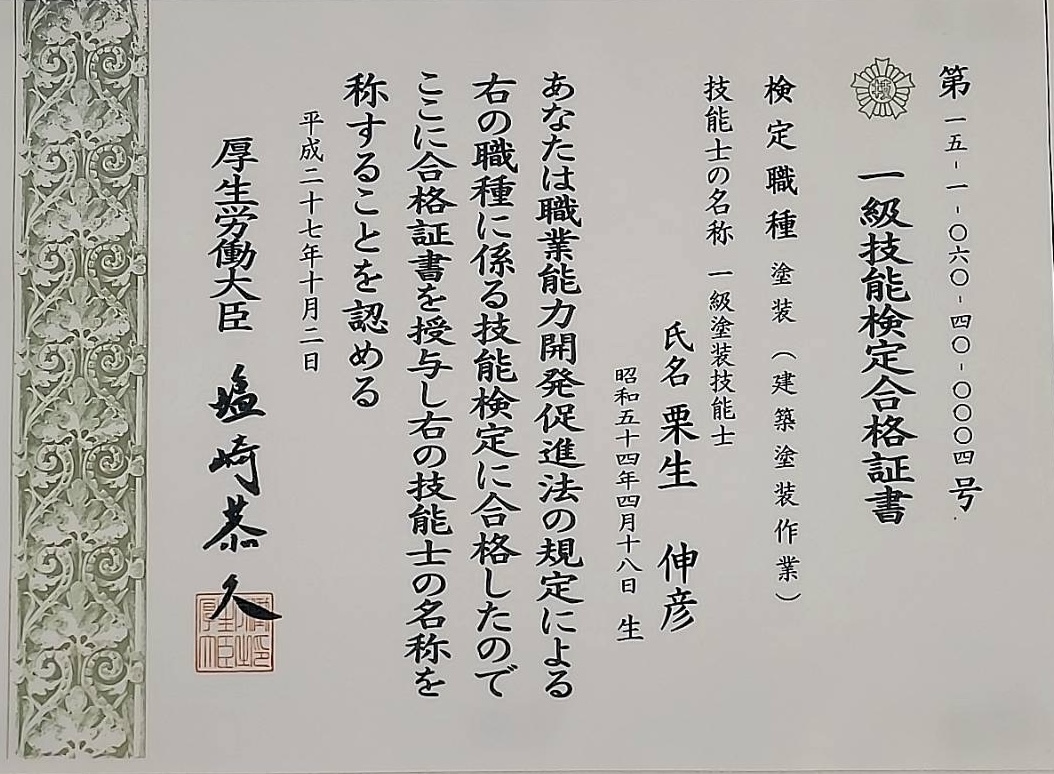 第一五-一-〇六〇-四〇-〇〇〇四号
一級技能検定合格証書
検定職種 塗装(建築塗装作業)
技能士の名称 一級塗装技能士
氏名 栗生 伸彦
昭和五十四年四月十八日 生
あなたは職業能力開発促進法の規定による
右の職種に係る技能検定に合格したので
ここに合格証書を授与し右の技能士の名称を
称することを認める
平成二十七年十月二日
厚生労働大臣 塩崎恭久